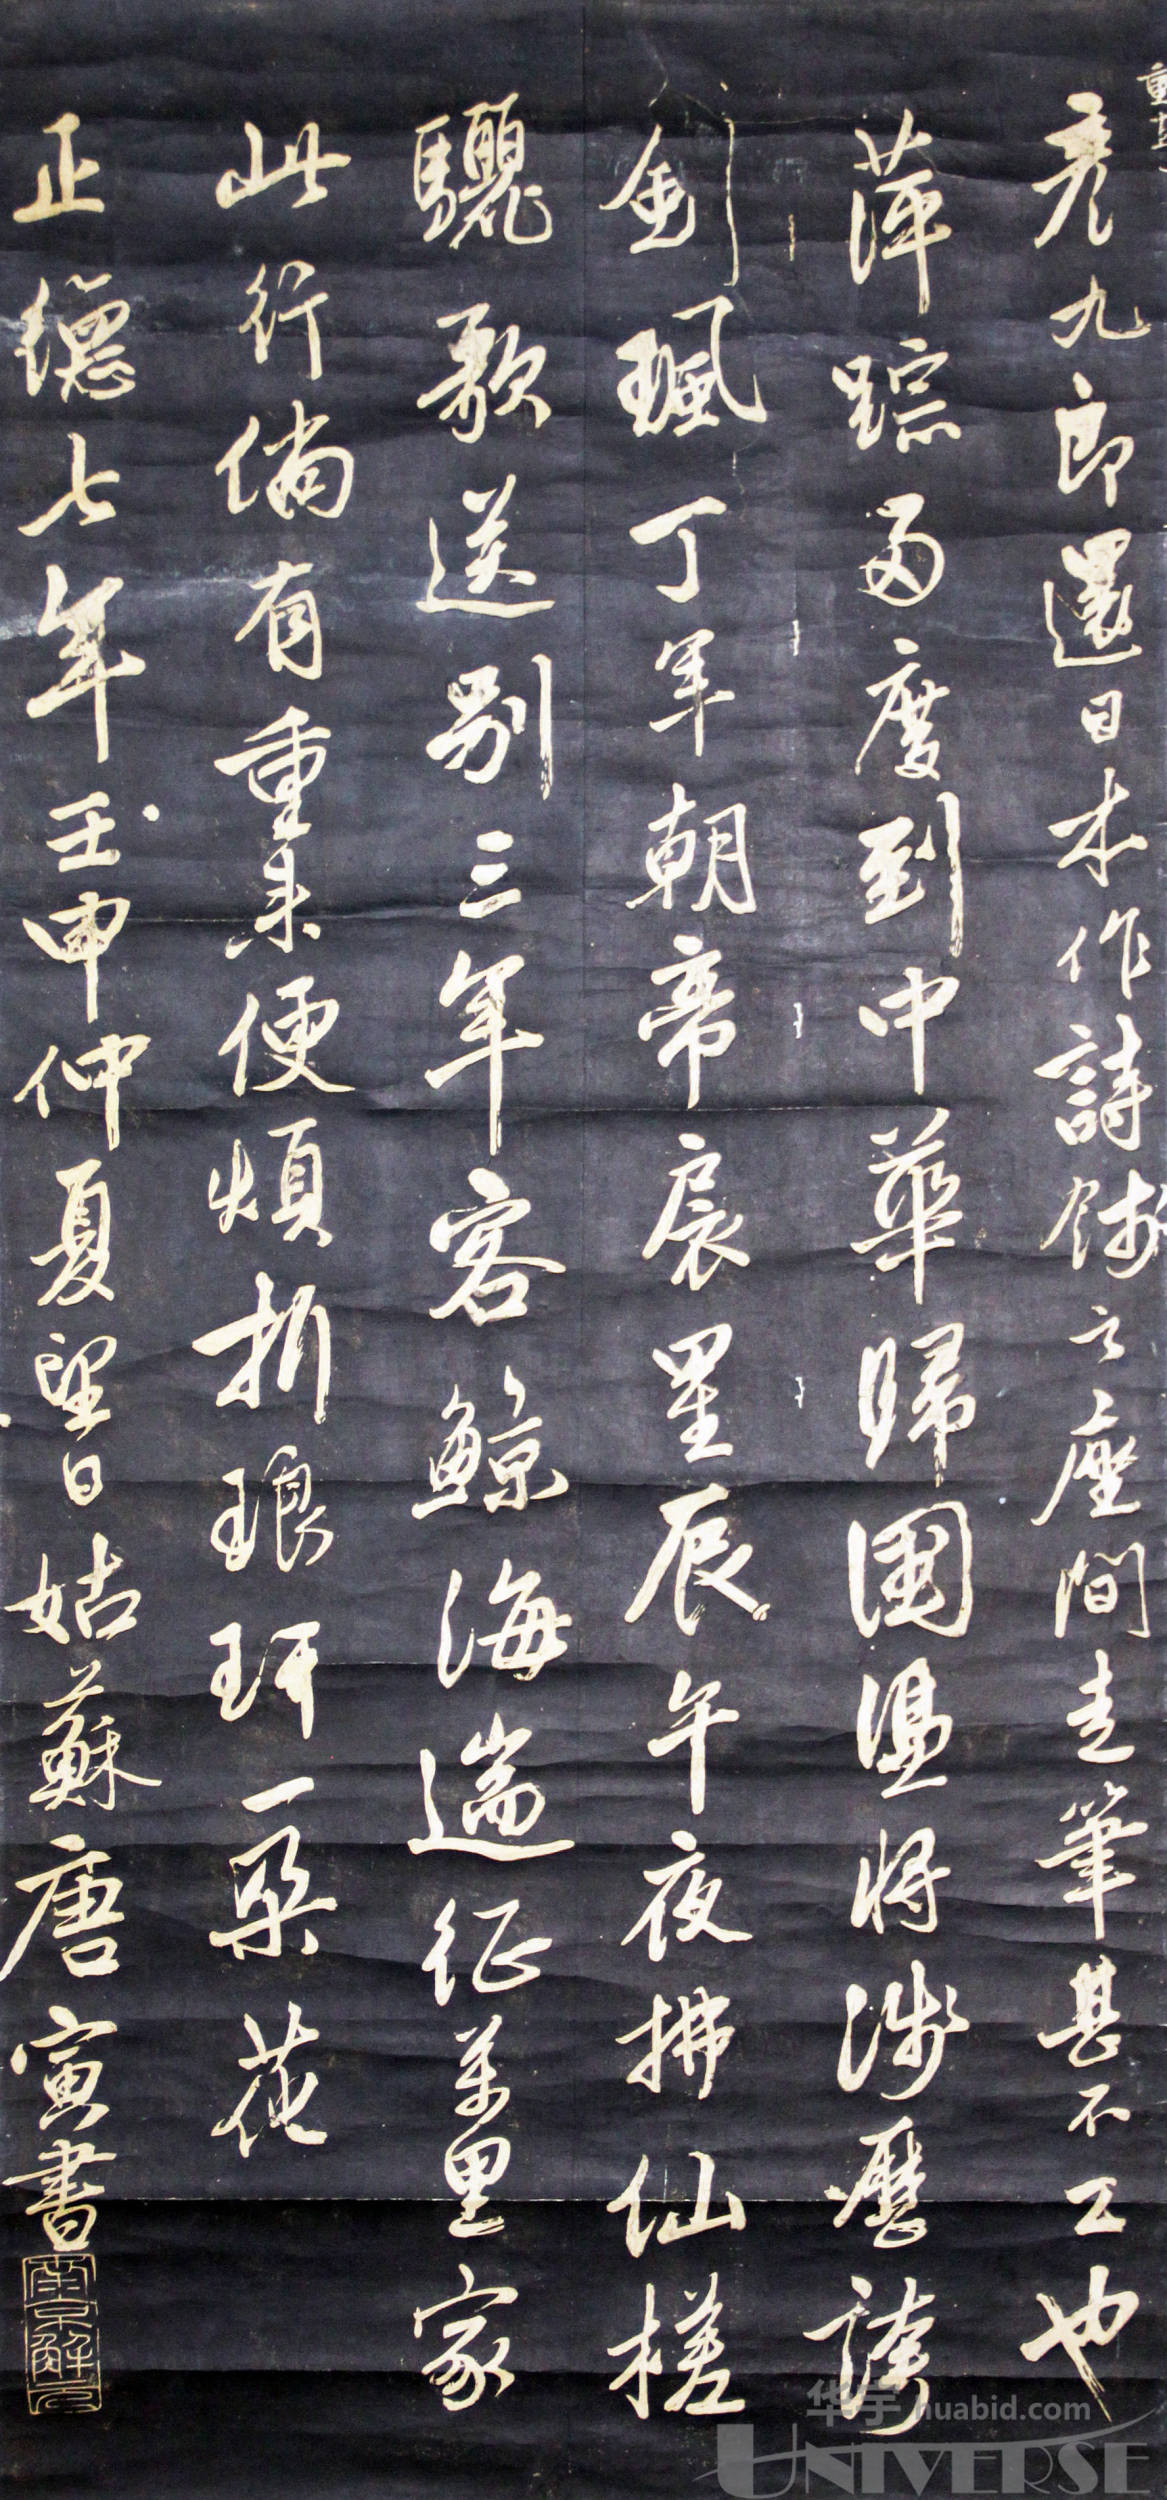 彦九郎還日本作詩餞之座間走筆甚不工也
萍踪両度到中華歸國憑將涉歷誇
劍珮丁年朝帝扆星辰午夜拂仙槎
驪歌送別三年客鯨海遄征萬里家
此行倘有重來便煩折琅玕一朵花
正德七年壬申仲夏望日姑蘇唐寅書
南京解元
华宇 huabid.com
UNIVERSE